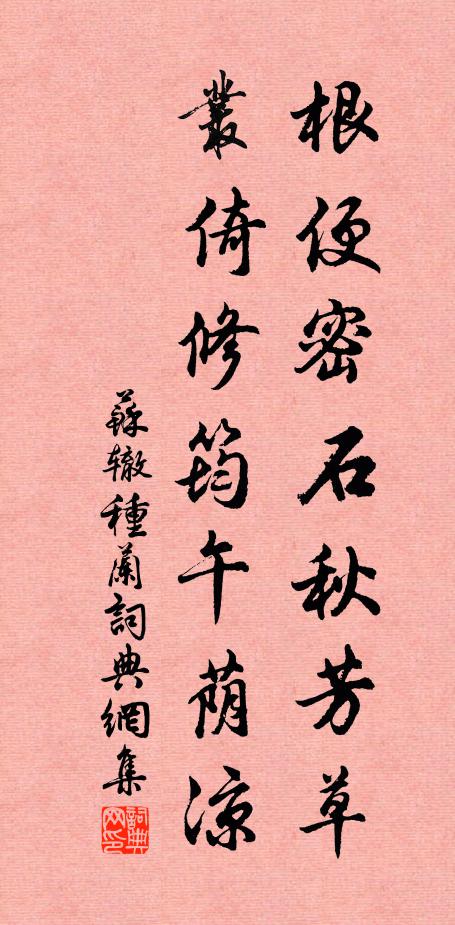 根便密石秋芳草
叢倚修筠午荫凉
蘇辙種蘭詞典網集
詞典
网印